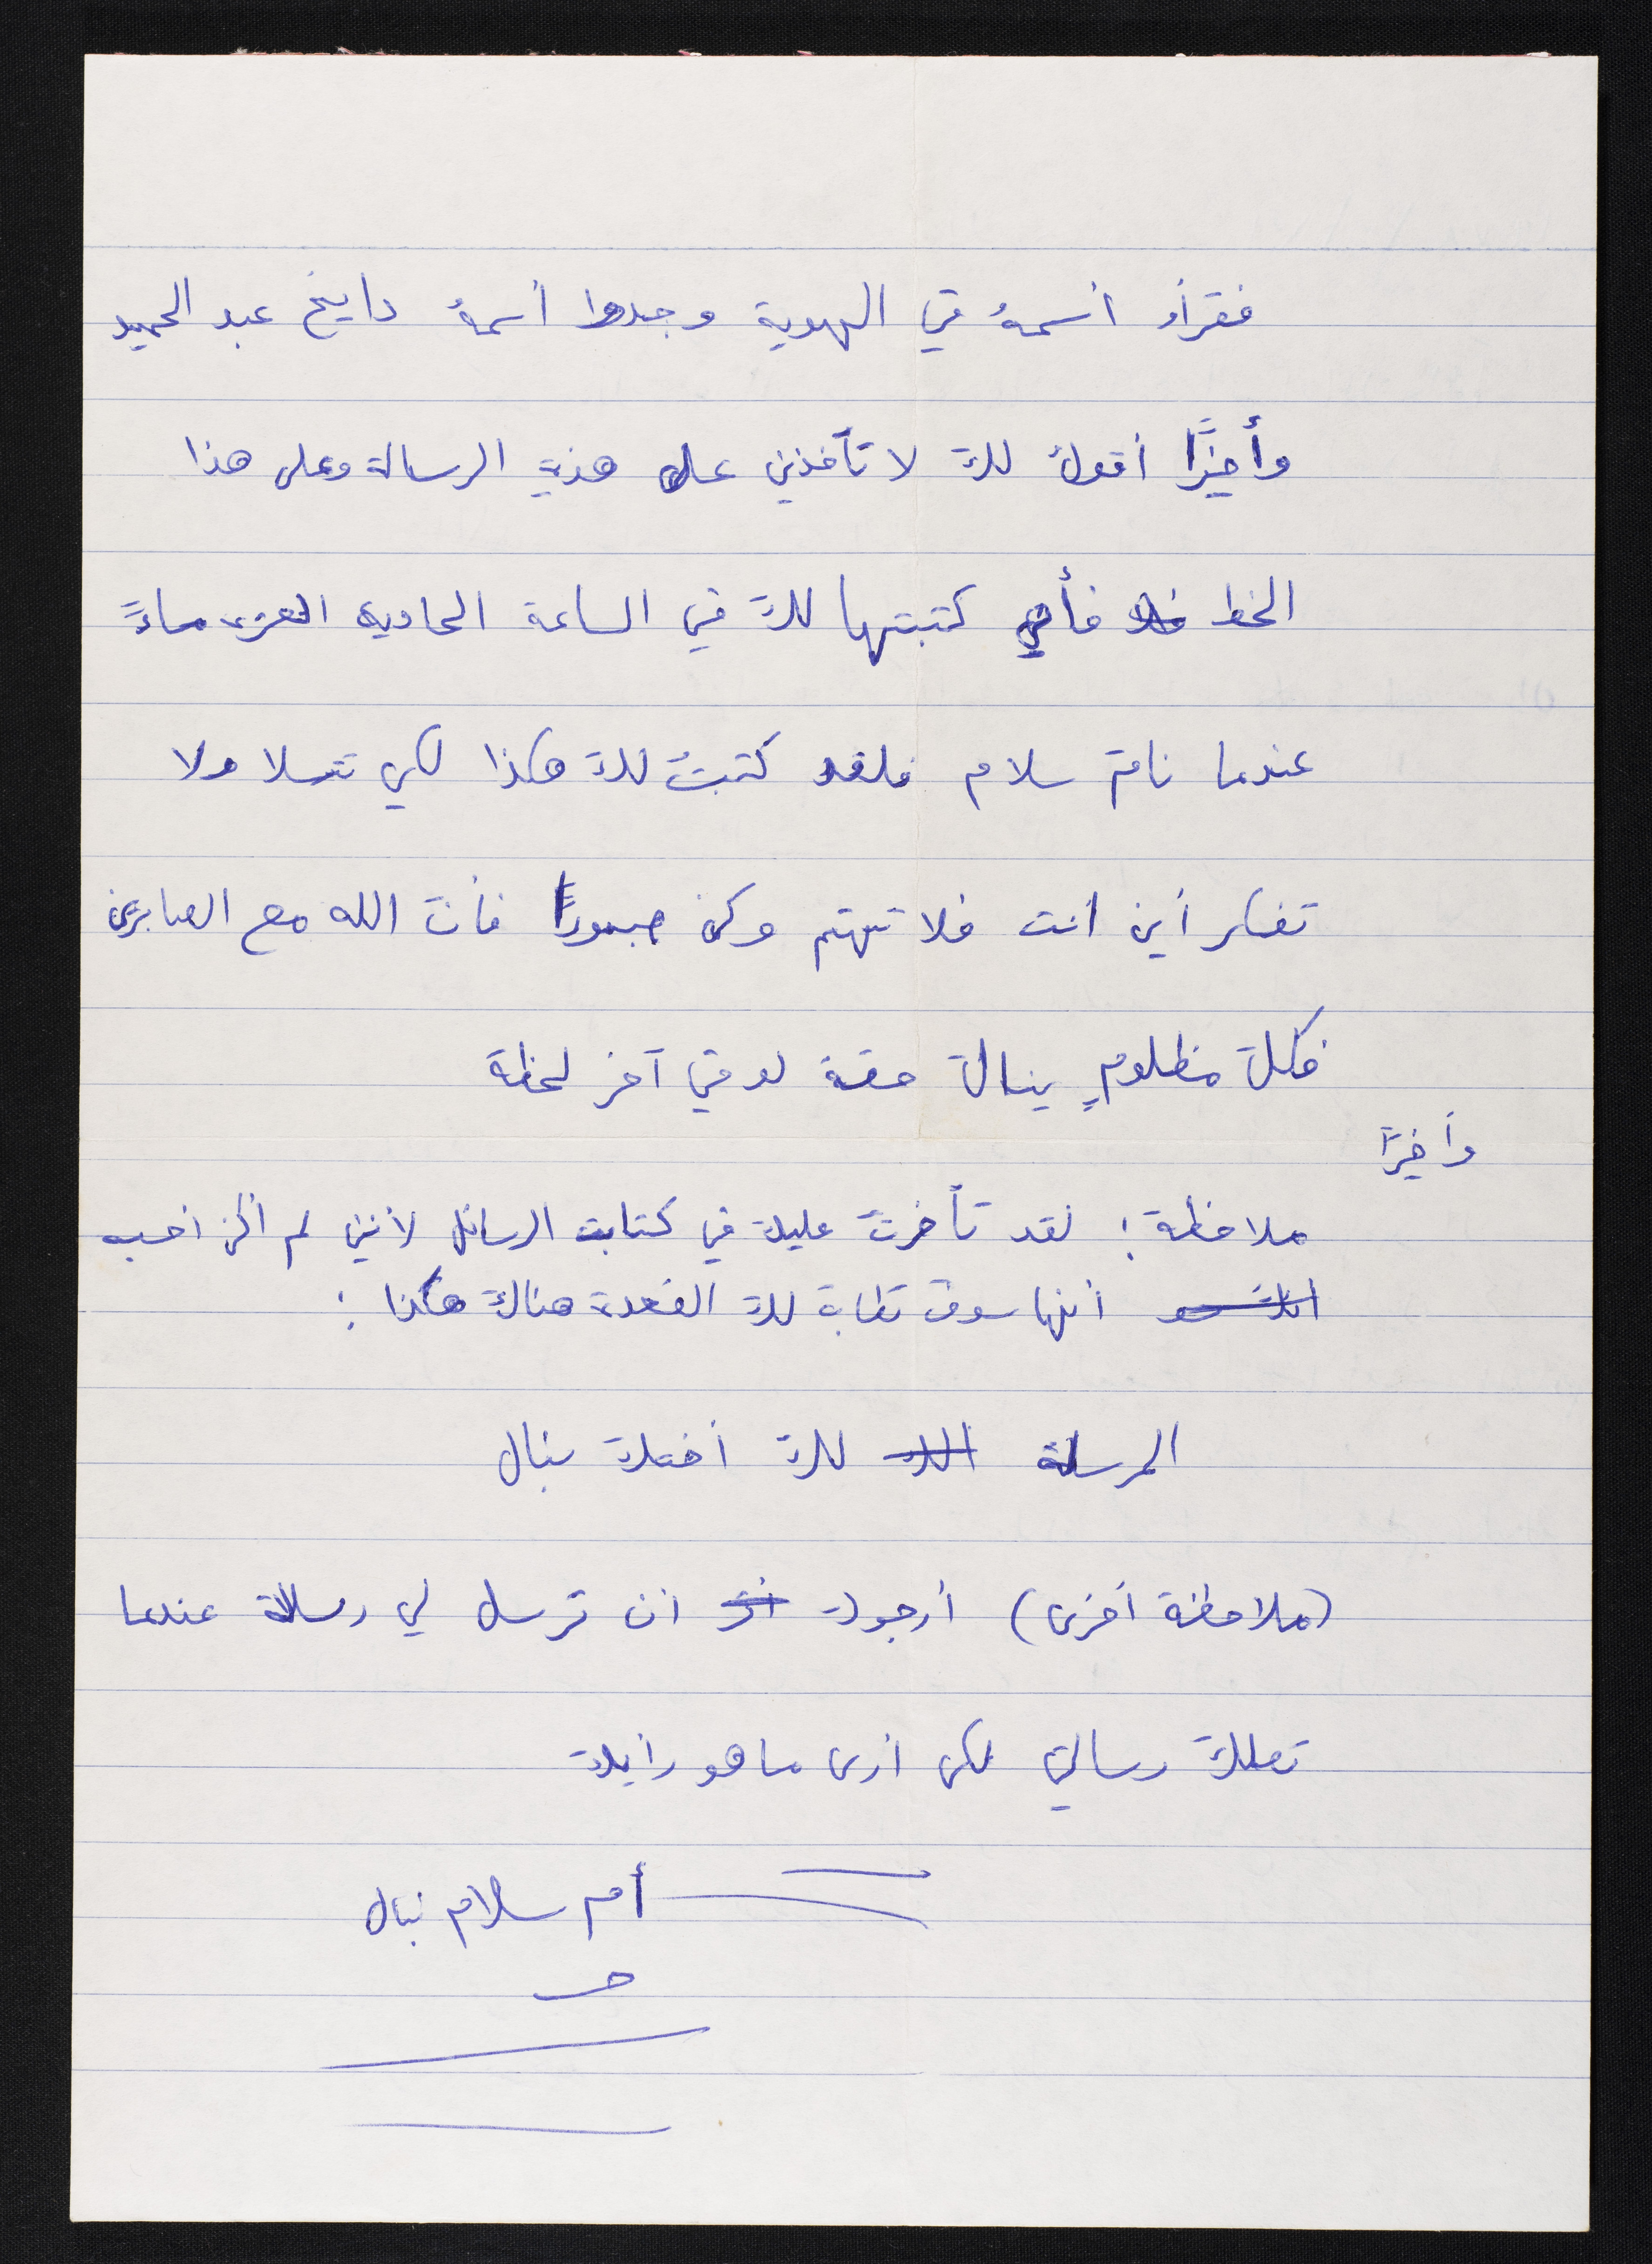 فقرأو أسمهُ في الهوية وجدوا أسمهُ دايخ عبد الحميد
وأخيرًا أقول لكَ لا تأخذني على هذهِ الرسالة وعلى هذا
الخط فأني كتبتها لكَ في الساعة الحادية العشر مساءً
عندما نامَ سلام فلقد كتبتُ لكَ هكذا لكي تتسلا ولا
تفكر أين أنت فلا تهتم وكن صبورًا فأن الله مع الصابرين
فكلَ مظلومٍ ينال حقهُ لو في آخر لحظة
وأخيرًا
ملاحظة: لقد تأخرتُ عليك في كتابت الرسائل لأنني لم أكن احسب
أنها سوف تطاب لكَ القعدة هناك هكذا:
المرسلة لكَ أختكَ نبال
(ملاحظة أخرى) أرجوك أن ترسل لي رسالة عندما
تصلك رسالتي لكي أرى ما هو رأيك
أم سلام نبال